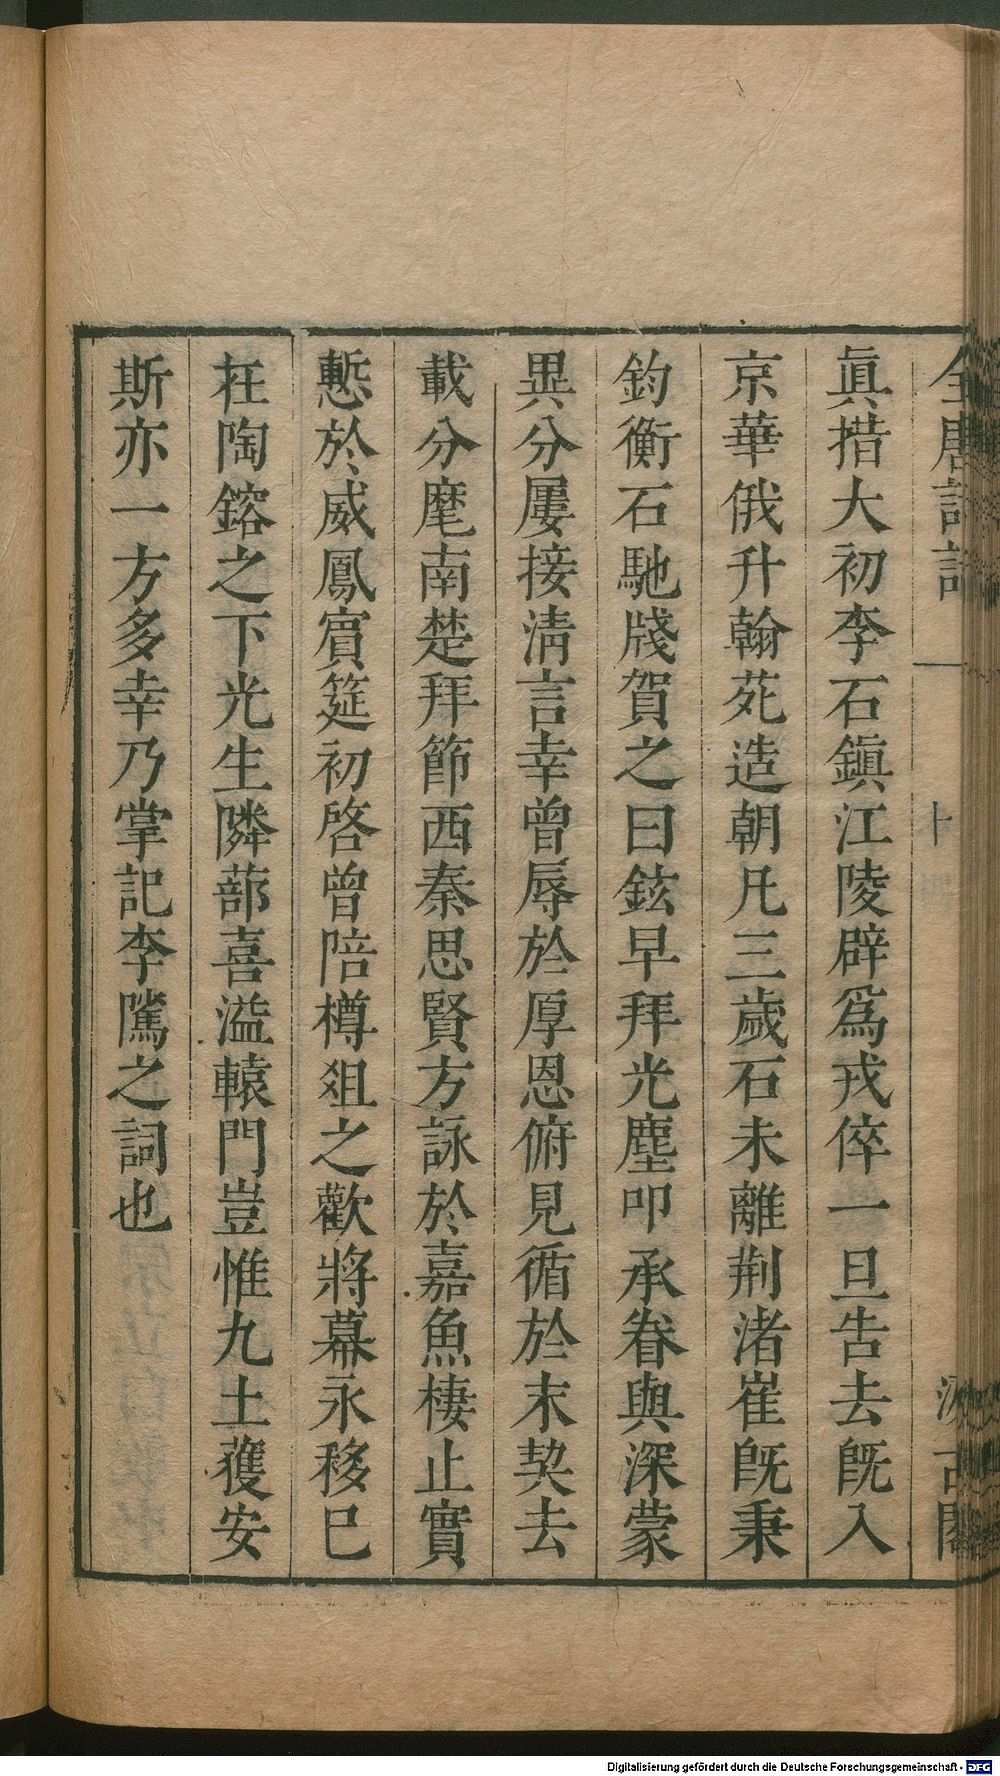 全唐詩話
一
十
汲古閣
眞措大初李石鎭江陵辟爲戎倅一旦告去旣入
京華俄升翰苑造朝凡三歲石未離荆渚崔旣秉
鈞衡石馳牋賀之曰鉉早拜光塵叩承眷與深蒙
異分屢接淸言幸曾辱於厚恩俯見循於末契去
載分麾南楚拜節西秦思賢方詠於嘉魚棲止實
慙於威鳳賓筵初啓曾陪樽爼之歡將幕永移已
在陶鎔之下光生隣蔀喜溢轅門豈惟九土獲安
斯亦一方多幸乃掌記李隲之詞也
Digitalisierung gefördert durch die Deutsche Forschungsgemeinschaft - DFG